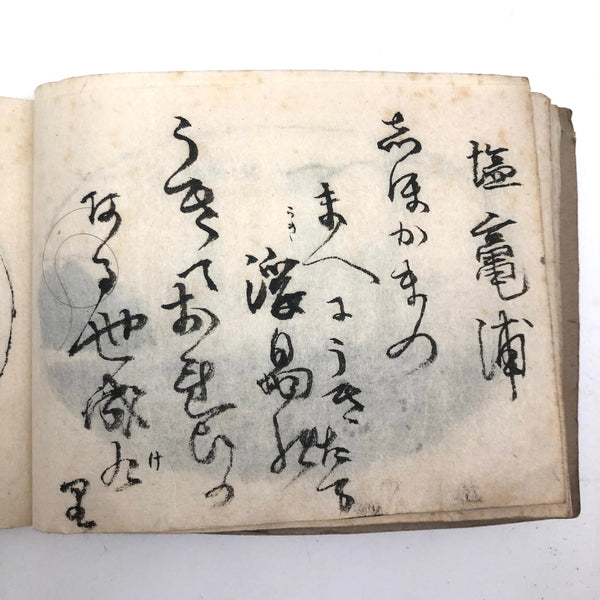 塩竈浦
志ほかまの
まへにうきたる
浮島の
うき
うきておもひの
ある世成けり
け